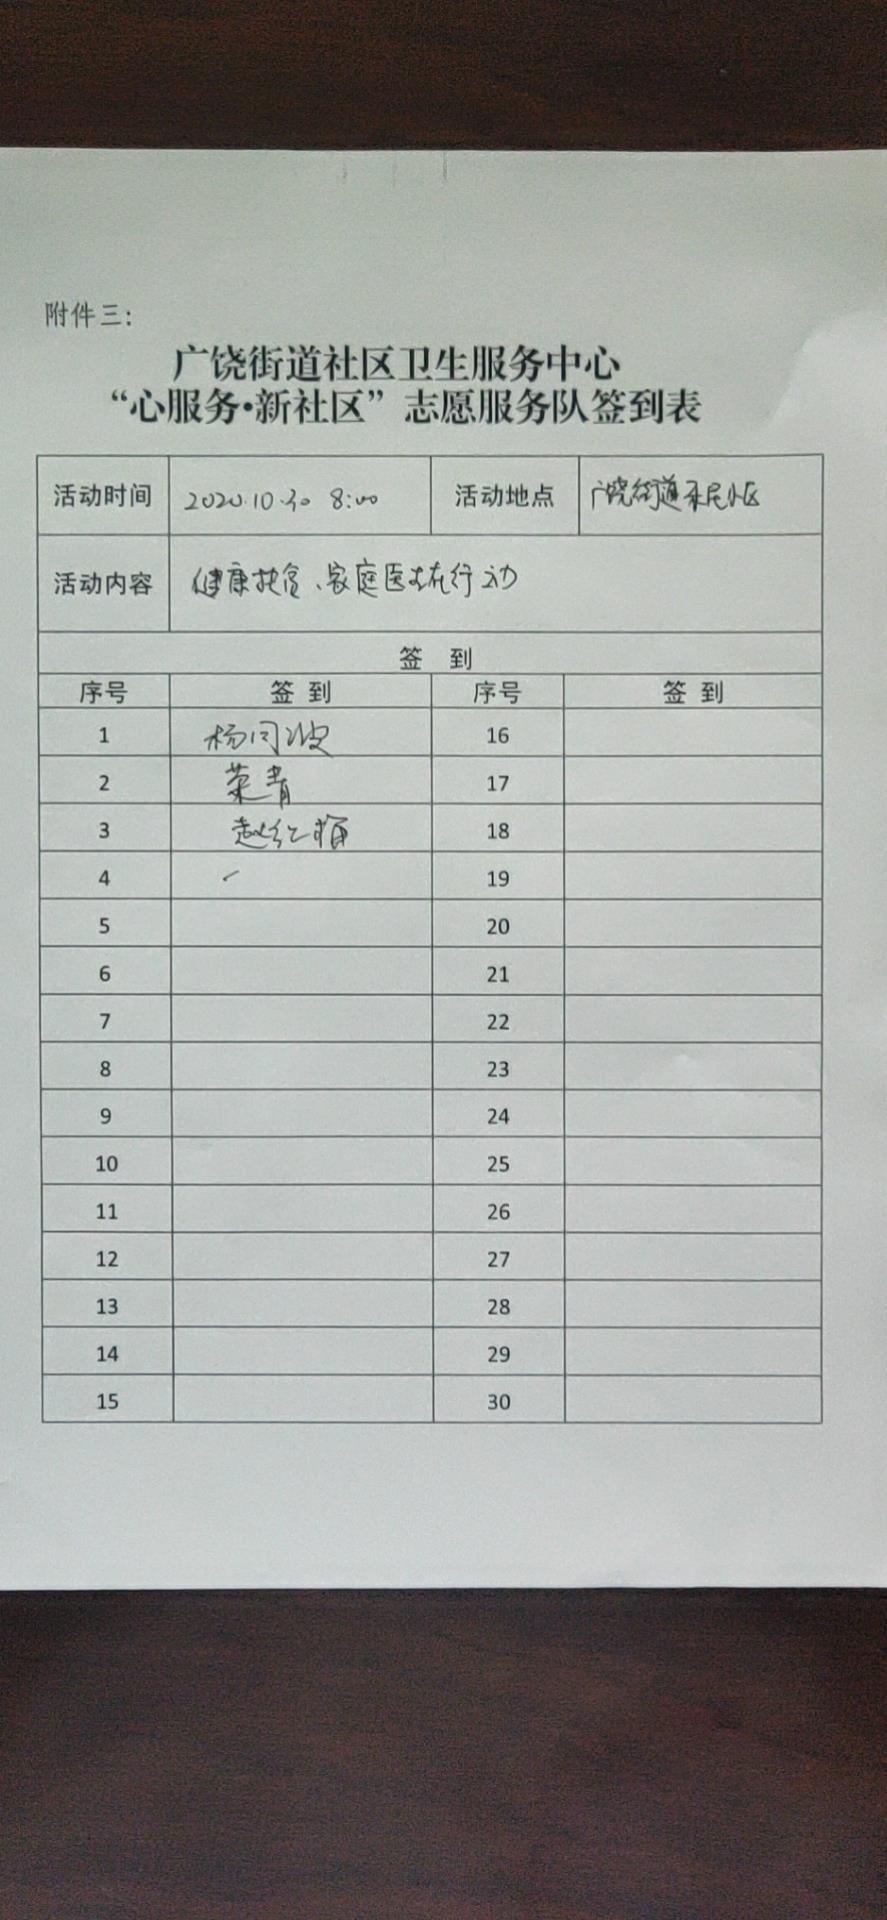 附件三:
广饶街道社区卫生服务中心
“心服务•新社区”志愿服务队签到表
活动时间 2020.10.30 8:00 活动地点 广饶街道居民小区
活动内容 健康扶贫、家庭医生在行动
签 到
序号 签 到 序号 签 到
1 杨同波 16
2 荣青 17
3 赵红 18
4 19
5 20
6 21
7 22
8 23
9 24
10 25
11 26
12 27
13 28
14 29
15 30